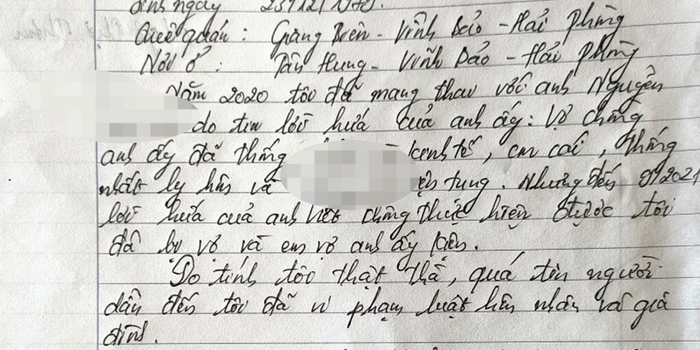 sinh ngày 23/12/1982.
Quê quán: Giang Biên - Vĩnh Bảo - Hải Phòng
Nơi ở : Tân Hưng - Vĩnh Bảo - Hải Phòng
Năm 2020 tôi đã mang thai với anh Nguyễn
do tin lời hứa của anh ấy: Vợ chồng
anh ấy đã thống kinh tế, con cái, thống
nhất ly hôn và tụng. Nhưng đến 9/2021
lời hứa của anh không thực hiện được tôi
đã bị vợ và em vợ anh ấy kiện.
Do tính tôi thật thà, quá tin người
dẫn đến tôi đã vi phạm luật hôn nhân và gia
đình.